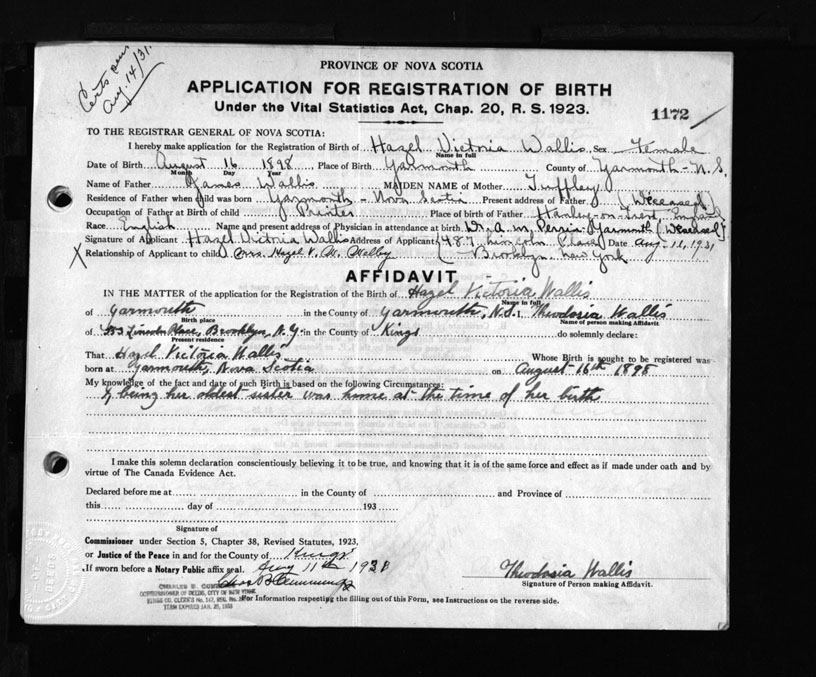 Certs sent
Aug. 14/31.
PROVINCE OF NOVA SCOTIA
APPLICATION FOR REGISTRATION OF BIRTH
Under the Vital Statistics Act, Chap. 20, R. S. 1923.
1172
TO THE REGISTRAR GENERAL OF NOVA SCOTIA:
I hereby make application for the Registration of Birth of Hazel Victoria Wallis Sex Female
Name in full
Date of Birth August 16 1898 Place of Birth Yarmouth County of Yarmouth - N.S.
Month Day Year
Name of Father James Wallis MAIDEN NAME of Mother Truffley
Residence of Father when child was born Yarmouth - Nova Scotia Present address of Father (Deceased)
Occupation of Father at Birth of child Printer Place of birth of Father Hanley-on-Trent, England
Race English Name and present address of Physician in attendance at birth Dr. A. M. Perrin Yarmouth (Deceased)
Signature of Applicant Hazel Victoria Wallis Address of Applicant 487 Lincoln Place Date Aug-12, 1931
X Relationship of Applicant to child Mrs. Hazel V. W. Melby Brooklyn New York
AFFIDAVIT
IN THE MATTER of the application for the Registration of the Birth of Hazel Victoria Wallis
Name in full
of Yarmouth in the County of Yarmouth, N.S. I, Theodosia Wallis
Birth place Name of person making Affidavit
of 553 Lincoln Place, Brooklyn, N.Y. in the County of Kings do solemnly declare:
Present residence
That Hazel Victoria Wallis Whose Birth is sought to be registered was
born at Yarmouth, Nova Scotia on August 16th 1898
My knowledge of the fact and date of such Birth is based on the following Circumstances:
I being her oldest sister was home at the time of her birth
I make this solemn declaration conscientiously believing it to be true, and knowing that it is of the same force and effect as if made under oath and by
virtue of The Canada Evidence Act.
Declared before me at in the County of and Province of
this day of 193
Signature of
Commissioner under Section 5, Chapter 38, Revised Statutes, 1923,
or Justice of the Peace in and for the County of Kings
If sworn before a Notary Public affix seal. Aug 11th 1931
Chas B Cummings
Theodosia Wallis
Signature of Person making Affidavit.
COMMISSIONER OF DEEDS, CITY OF NEW YORK
For Information respecting the filling out of this Form, see Instructions on the reverse side.